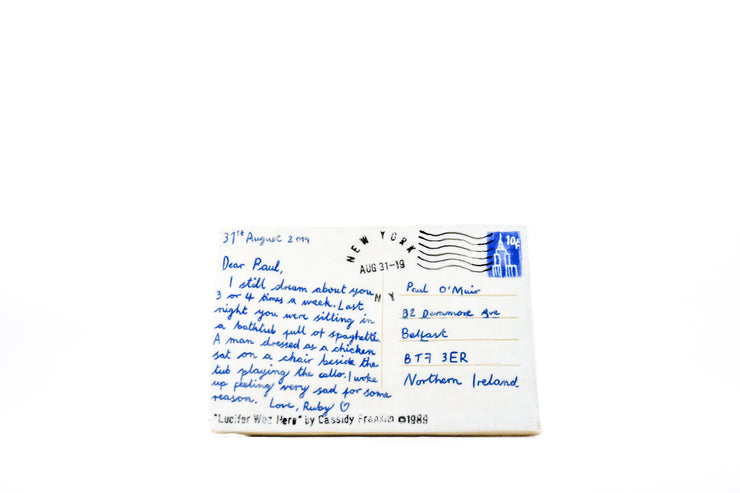 31st August 2019
Dear Paul,
I still dream about you
3 or 4 times a week. Last
night you were sitting in
a bathtub full of spaghetti.
A man dressed as a chicken
sat on a chair beside the
tub playing the cello. I woke
up feeling very sad for some
reason. Love, Ruby ♡
"Lucifer Woz Here" by Cassidy Franklin ©1989
NEW YORK
AUG 31-19
NY
10¢
Paul O'Muir
Ave
Belfast
BT7 3ER
Northern Ireland